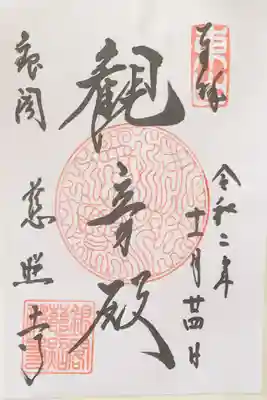 奉拝
令和二年
十一月廿四日
観音殿
銀閣
慈照寺